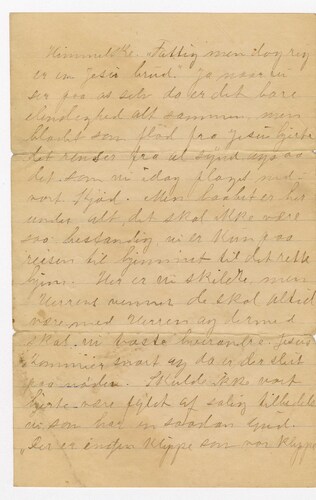 Himmelske. Fattig men dog rig
er en Jesu brud. Ja naar vi
ser paa os selv da er det bare
elendeghed alt sammen men
blodet som flød fra Jesu hjerte
det renser fra al synd ogsaa
det som vi idag plaget med
vort Kjød. Men haabet er her
under alt det skal ikke være
saa bestandig vi er Kun paa
reisen til hjemmet til det rette
hjem. Her er vi skilte men
Herrens venner de skal altid
være med Herren og dermed
skal vi trøste hverandre. Jesus
Kommer snart og da er det slut
paa nøden. Skulde ikke vort
hjerte være fyldt af salig tilbedelse
vi som har en saadan Gud.
Der er ingen Klippe som vor Klippe